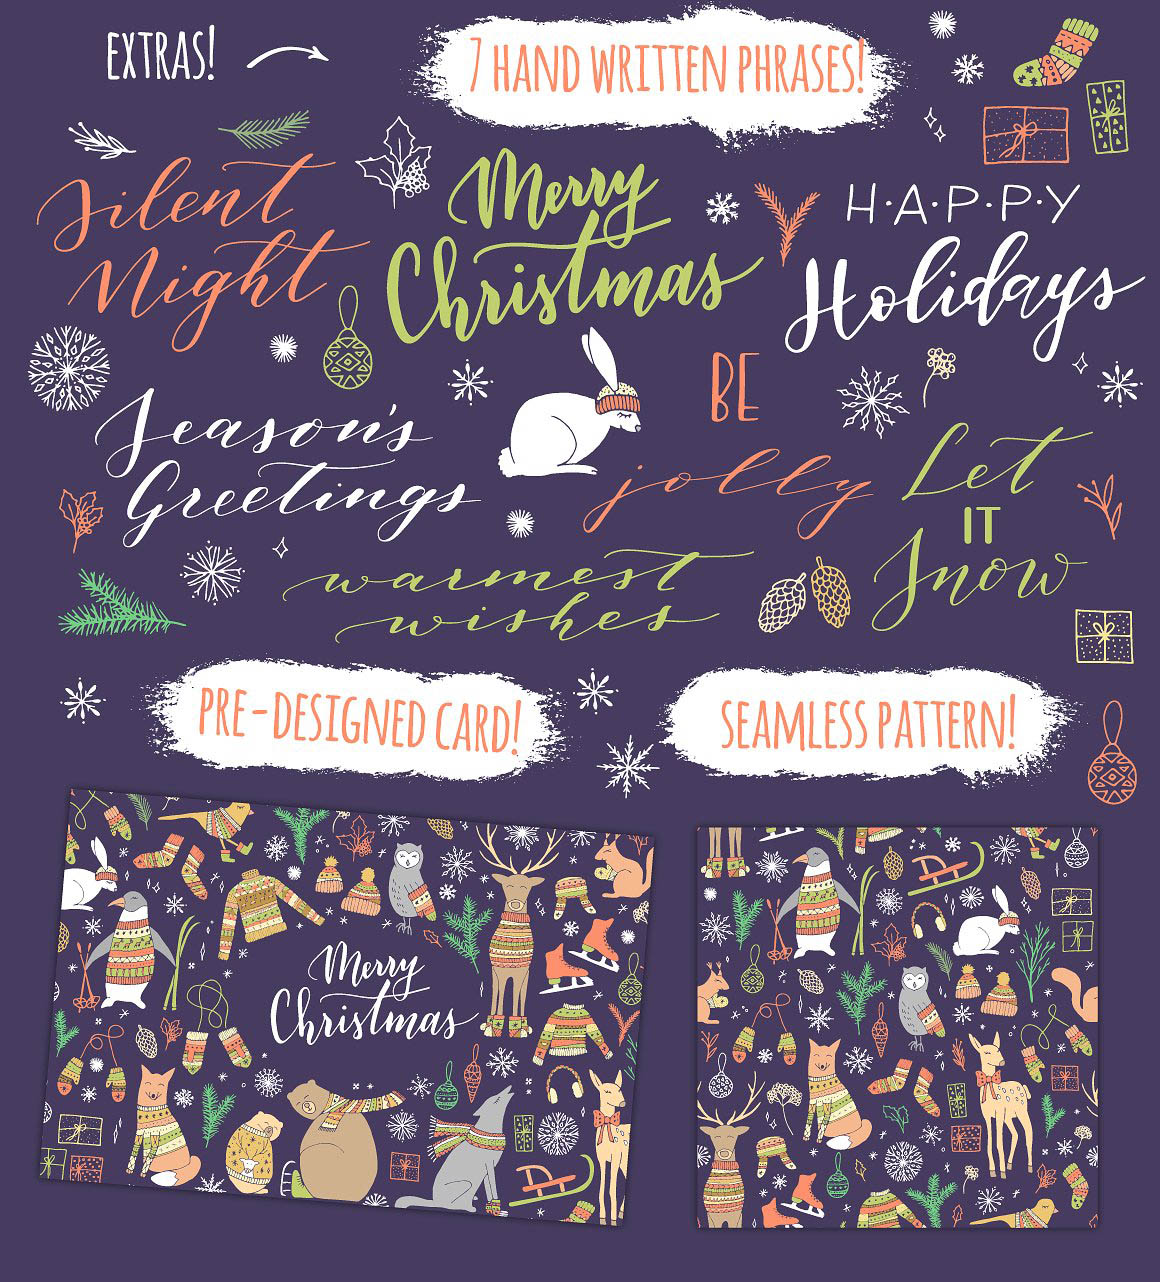 EXTRAS!
7 HAND WRITTEN PHRASES!
Silent
Night
Merry
Christmas
H·A·P·P·Y
Holidays
Season's
Greetings
BE
jolly
Let
IT
Snow
warmest
wishes
PRE-DESIGNED CARD!
SEAMLESS PATTERN!
Merry
Christmas